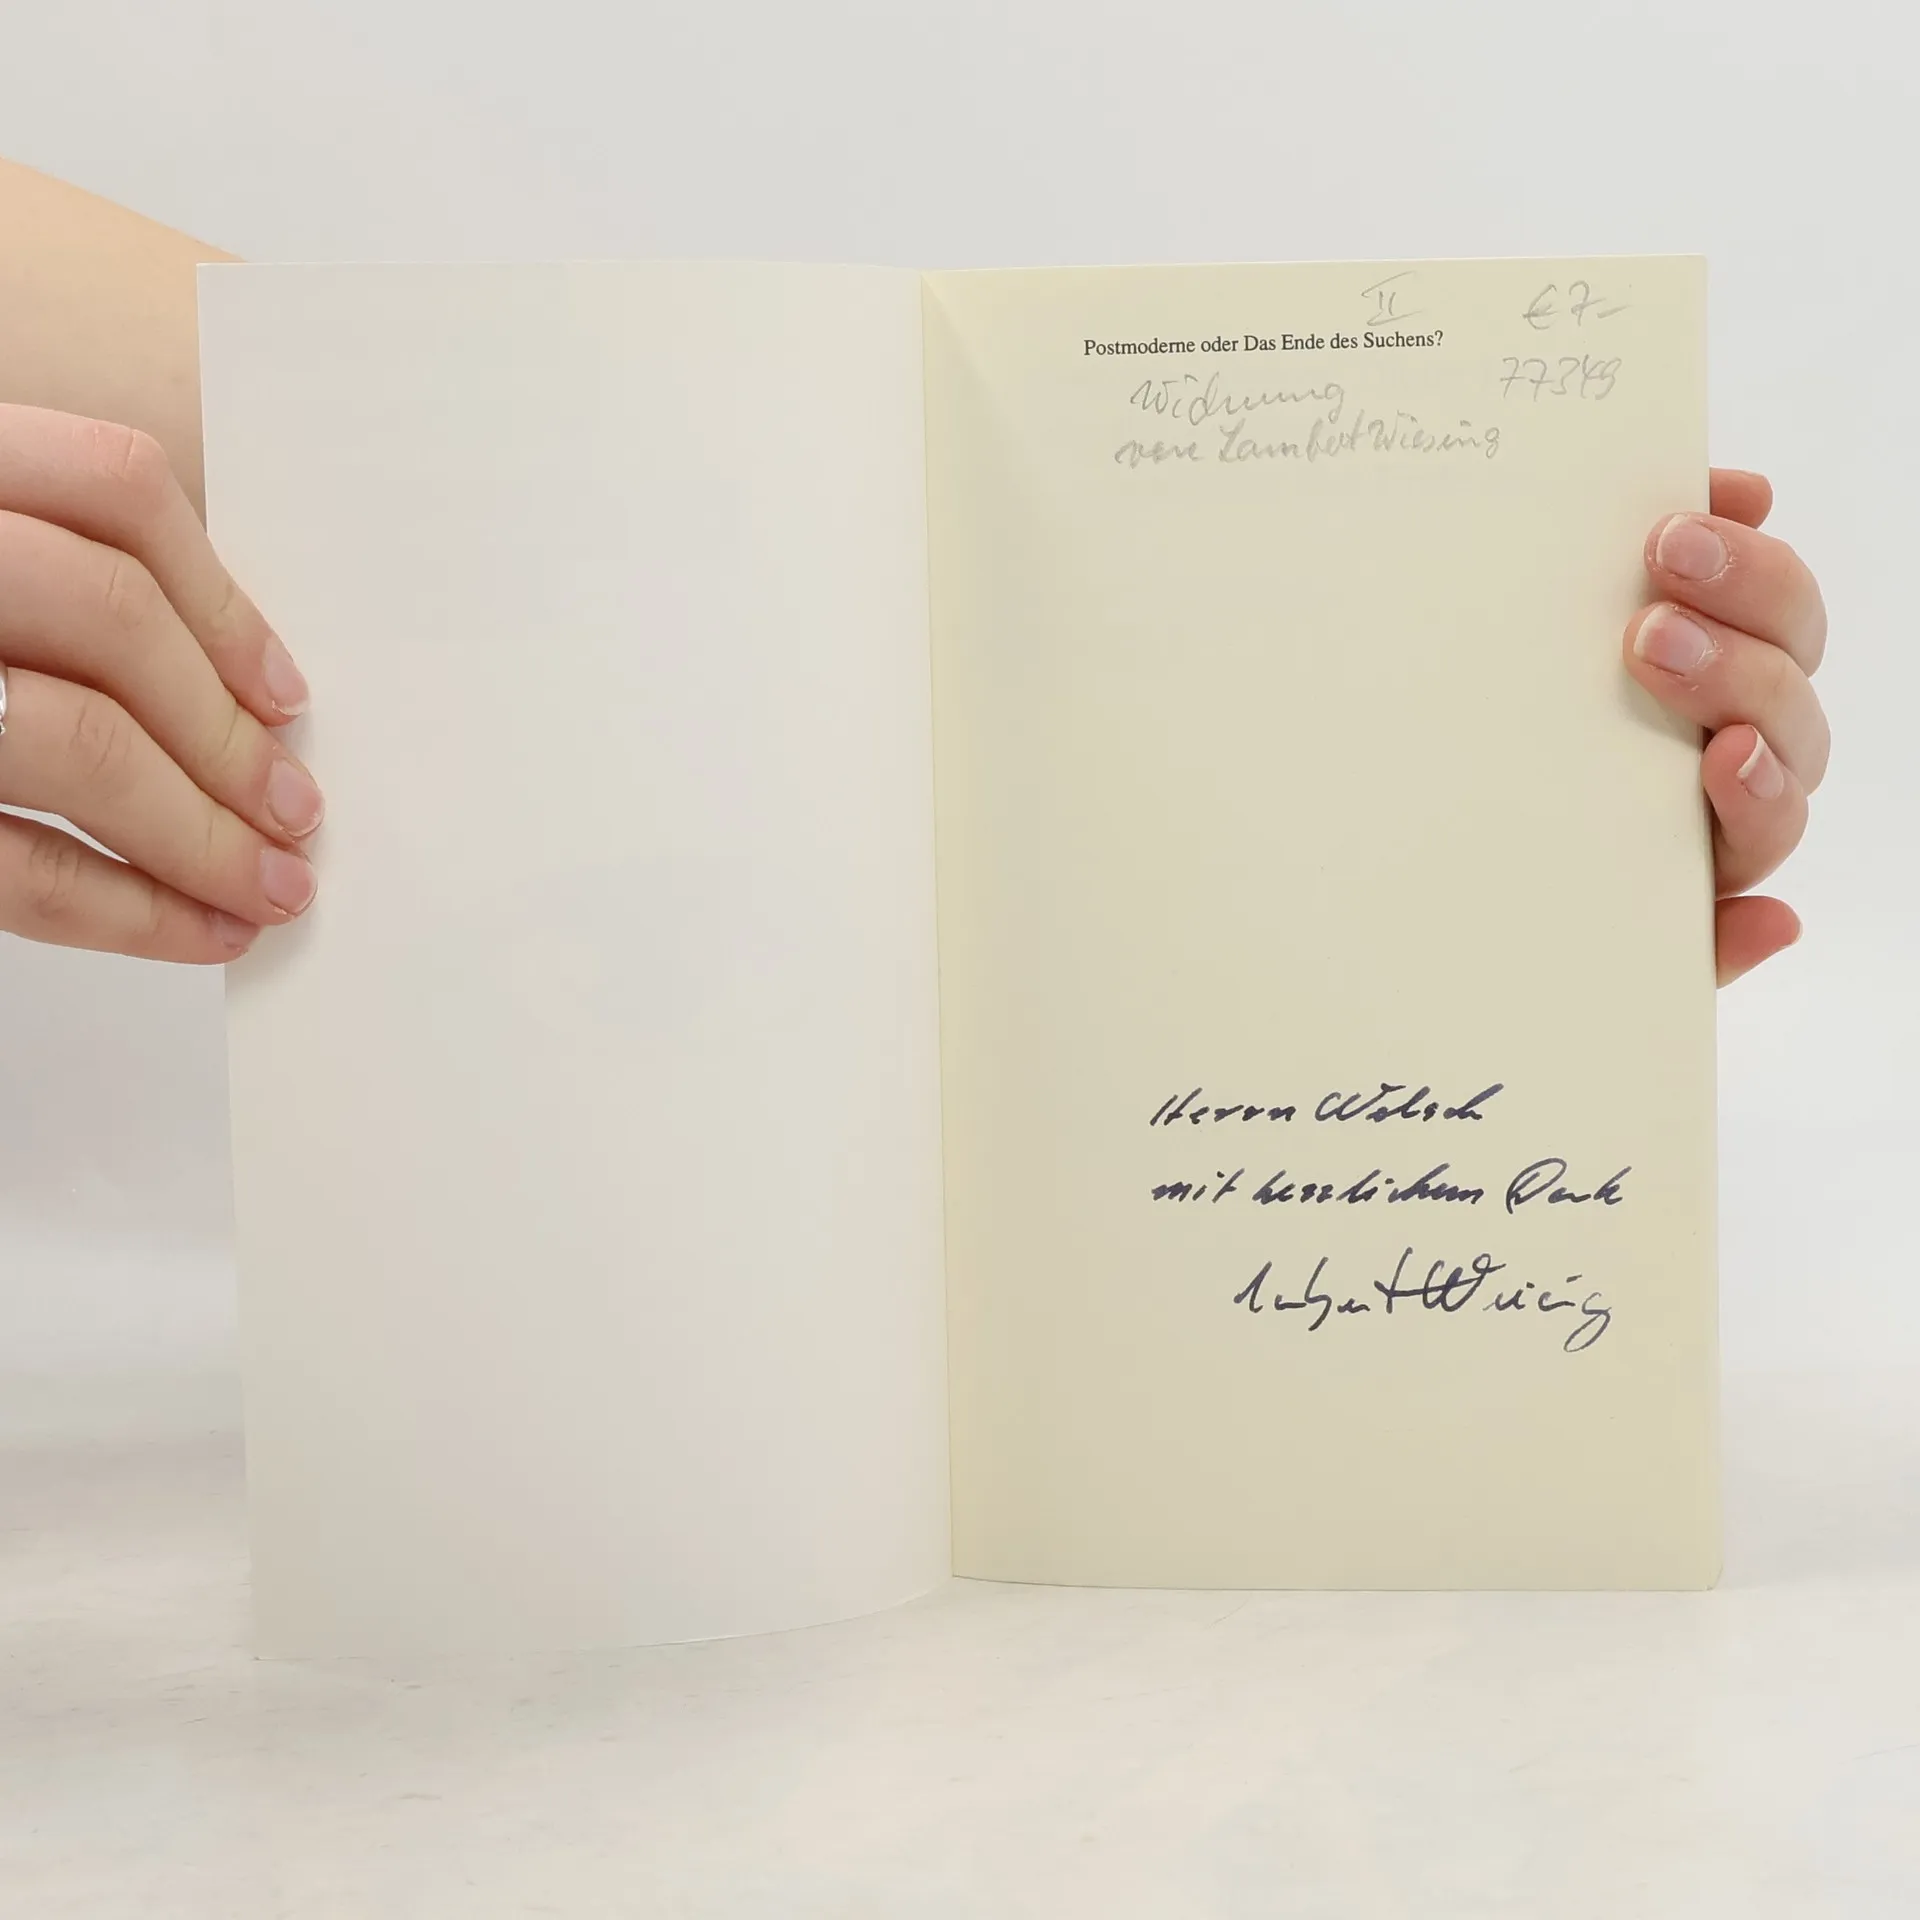 II
€ 7-
Postmoderne oder Das Ende des Suchens?
77349
Widmung
von Lambert Wiesing
Herrn Welsch
mit herzlichem Dank
Lambert Wiesing